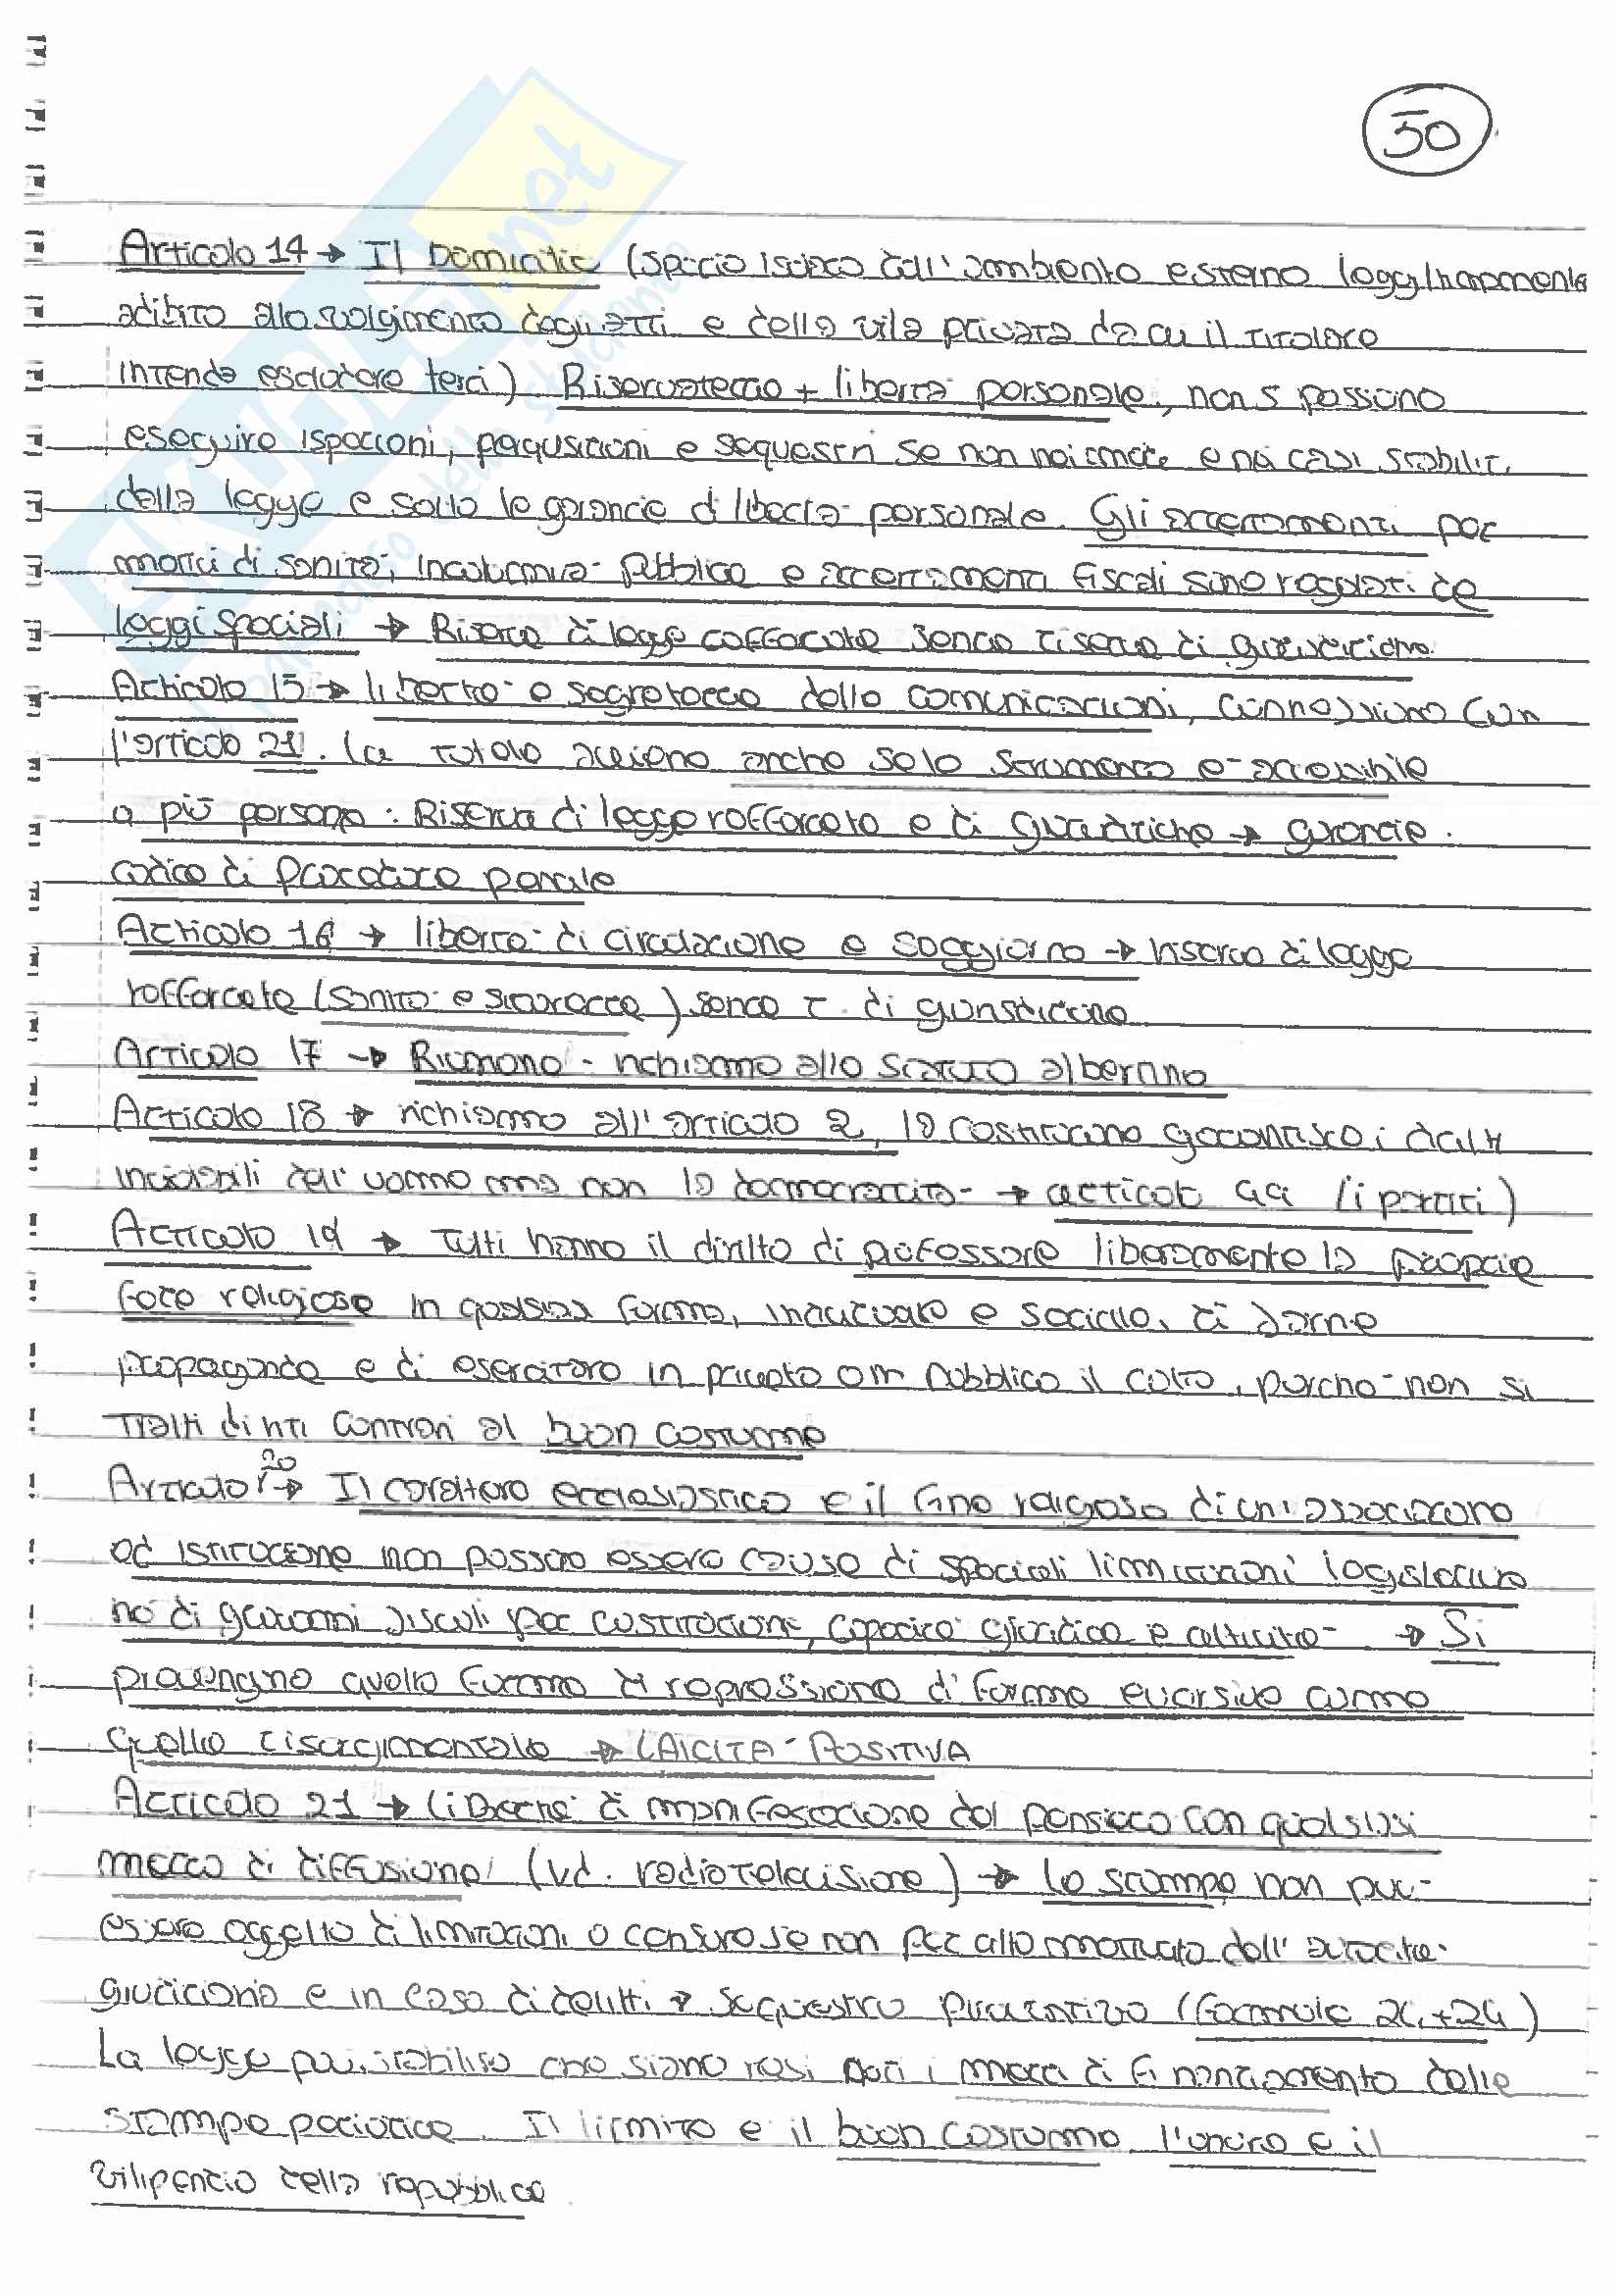 50
Articolo 14 → Il Domicilio (spazio isolato dall'ambiente esterno legittimamente
adibito allo svolgimento degli atti e della vita privata da cui il titolare
intende escludere terzi) Riservatezza + libertà personale, non si possono
eseguire ispezioni, perquisizioni e sequestri se non nei modi e nei casi stabiliti
dalla legge e sotto le garanzie di libertà personale. Gli accertamenti per
motivi di sanità, incolumità pubblica e accertamenti fiscali sono regolati da
leggi speciali → Riserva di legge rafforzata senza riserva di giurisdizione.
Articolo 15 → libertà e segretezza delle comunicazioni, connessione con
l'articolo 21. La tutela avviene anche se lo strumento è accessibile
a più persone: Riserva di legge rafforzata e di giurisdizione → garanzie.
codice di procedura penale
Articolo 16 → libertà di circolazione e soggiorno → riserva di legge
rafforzata (sanità e sicurezza) senza r. di giurisdizione
Articolo 17 → Riunione - richiamo allo statuto albertino
Articolo 18 → richiamo all'articolo 2, la costituzione garantisce i diritti
inviolabili dell'uomo ma non la democraticità → articolo 49 (i partiti)
Articolo 19 → Tutti hanno il diritto di professare liberamente la propria
fede religiosa in qualsiasi forma, individuale e sociale, di darne
propaganda e di esercitare in privato o in pubblico il culto, purché non si
tratti di riti contrari al buon costume
Articolo 20 → Il carattere ecclesiastico e il fine religioso di un'associazione
od istituzione non possono essere causa di speciali limitazioni legislative
né di gravami fiscali per costituzione, capacità giuridica e attività → Si
prevengono quelle forme di repressione di forme eversive come
quella risorgimentale → LAICITÀ POSITIVA
Articolo 21 → Libertà di manifestazione del pensiero con qualsiasi
mezzo di diffusione (vd. radiotelevisione) → La stampa non può
essere oggetto di limitazioni o censure se non per atto motivato dell'autorità
giudiziaria e in caso di delitti → sequestro preventivo (24 + 24)
La legge può stabilire che siano resi noti i mezzi di finanziamento della
stampa periodica. Il limite è il buon costume, l'onore e il
vilipendio della repubblica